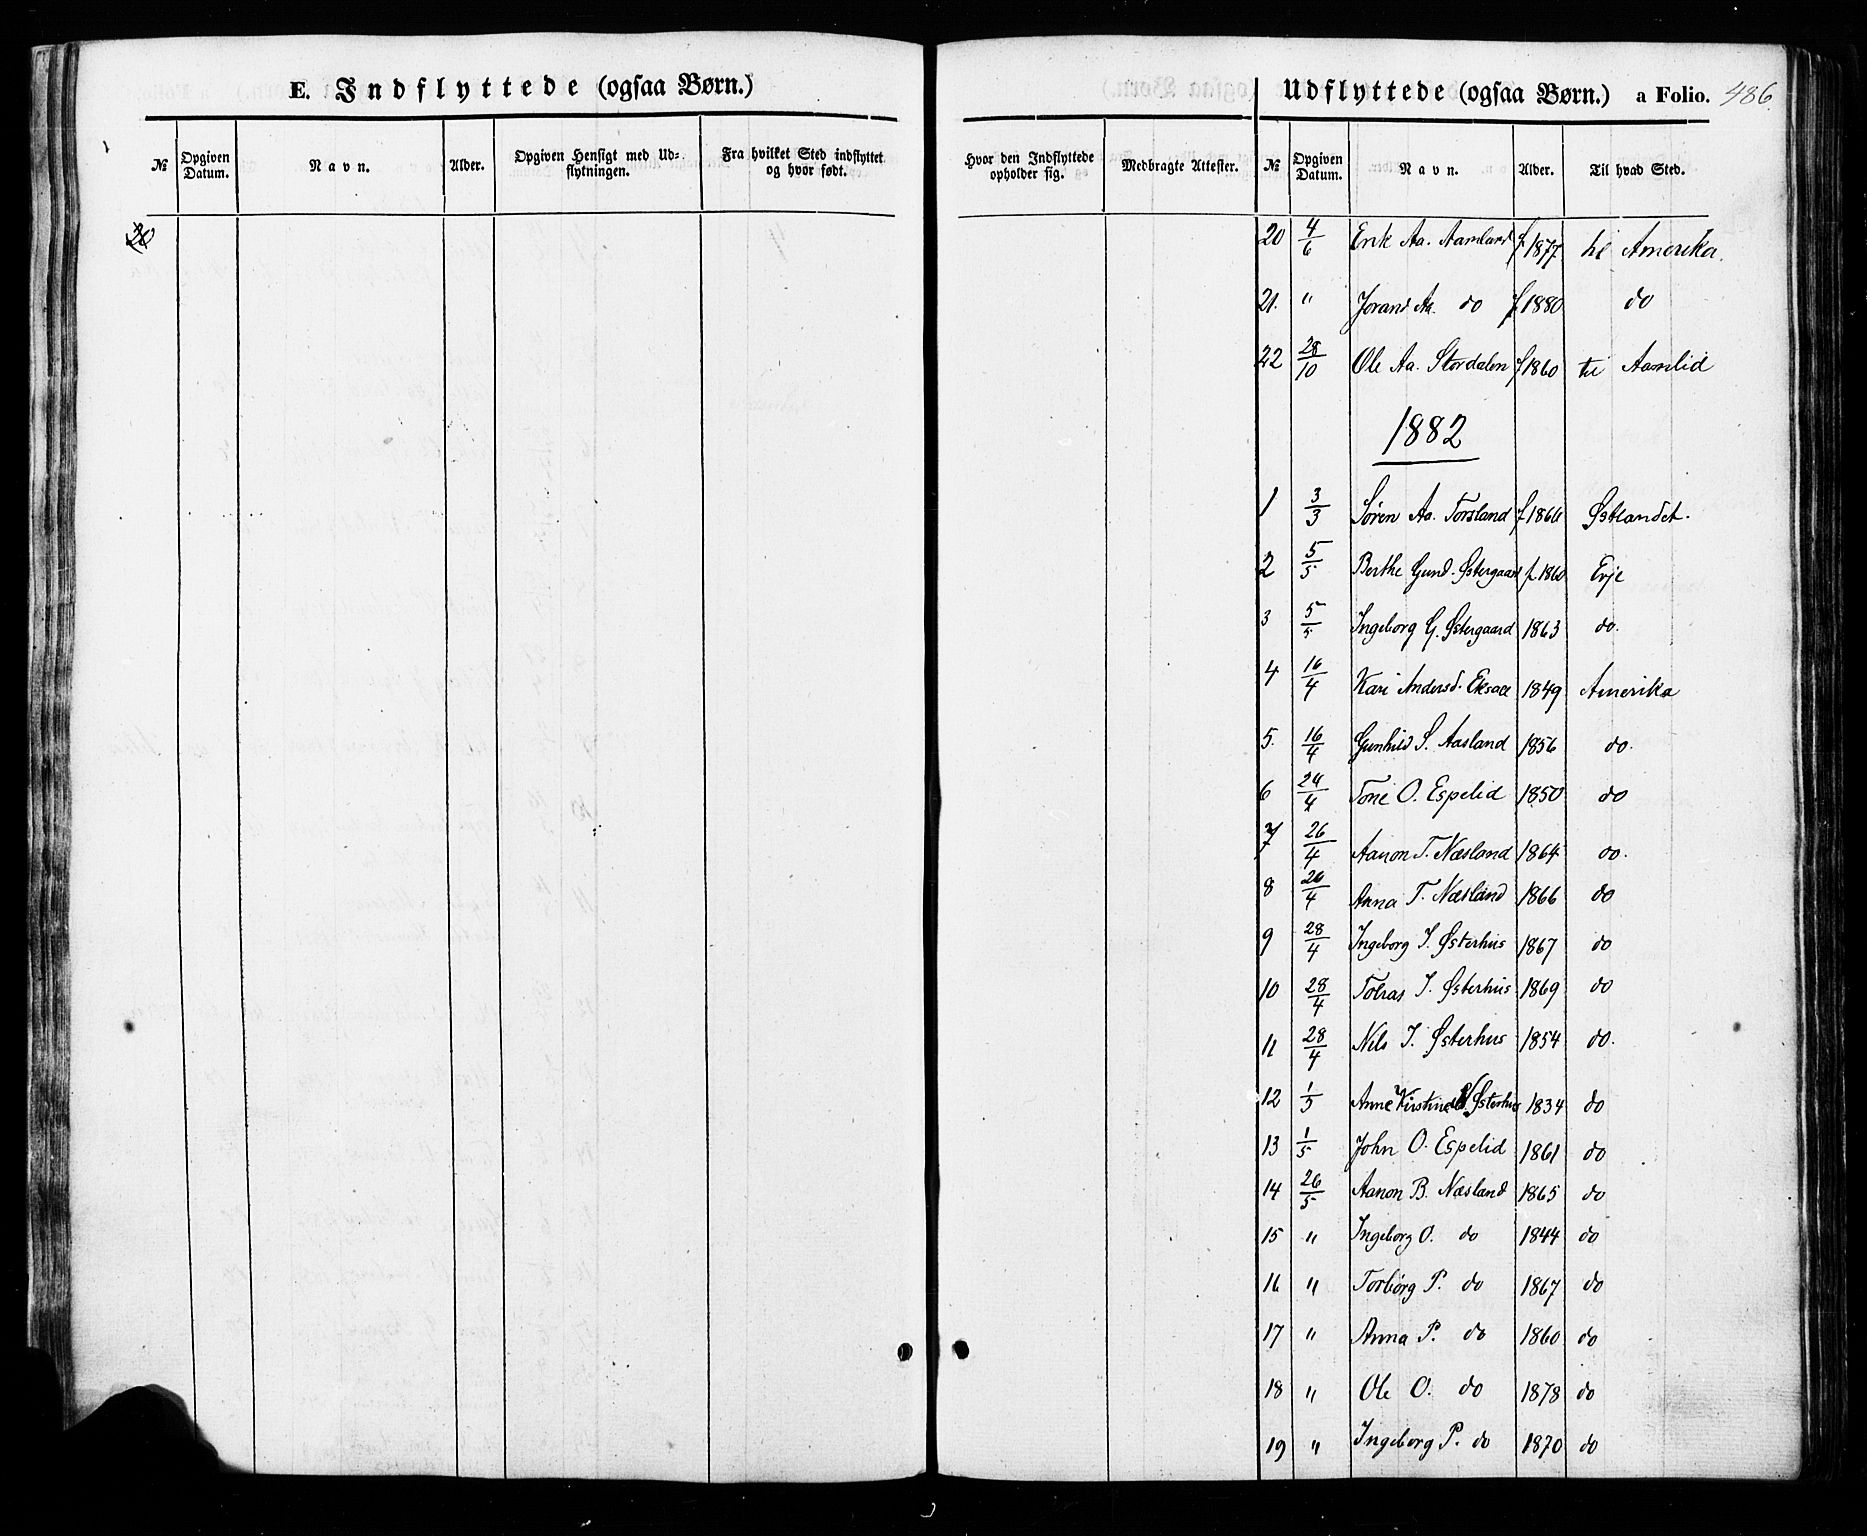 E. Indflyttede (ogsaa Børn.)
№ Opgiven Datum. Navn. Alder. Opgiven Hensigt med Udflytningen. Fra hvilket Sted indflyttet og hvor født.
20
Udflyttede (ogsaa Børn.) a Folio. 486.
Hvor den Indflyttede opholder sig. Medbragte Attester. № Opgiven Datum. Navn. Alder. Til hvad Sted.
20 4/6 Erik Aa. Aamland f 1877 til Amerika.
21. " Jorand Aa. do f 1880 do
22 28/10 Ole Aa. Stordalen f 1860 til Aamlid
1882
1 3/3 Søren Aa. Torsland f 1866 Østlandet.
2 5/5 Berthe Gund. Østergaard f. 1860 Evje
3 5/5 Ingeborg G. Østergaard 1863 do.
4 16/4 Kari Andersd. Eksaae 1849 Amerika
5. 16/4 Gunhild S. Aasland 1856 do.
6 24/4 Tone O. Espelid 1850 do
7 26/4 Aanon T. Næsland 1864 do.
8 26/4 Anna T. Næsland 1866 do
9 28/4 Ingeborg J. Østerhus 1867 do
10 28/4 Tobias J. Østerhus 1869 do
11 28/4 Nels J. Østerhus 1854 do.
12 1/5 Anne Kirstine Østerhus 1834 do
13 1/5 John O. Espelid 1861 do
14 26/5 Aanon B. Næsland 1865 do
15 " Ingeborg O. do 1844 do
16 " Torborg P. do 1867 do
17 " Anna P. do 1860 do
18 " Ole O. do 1878 do
19 " Ingeborg P. do 1870 do